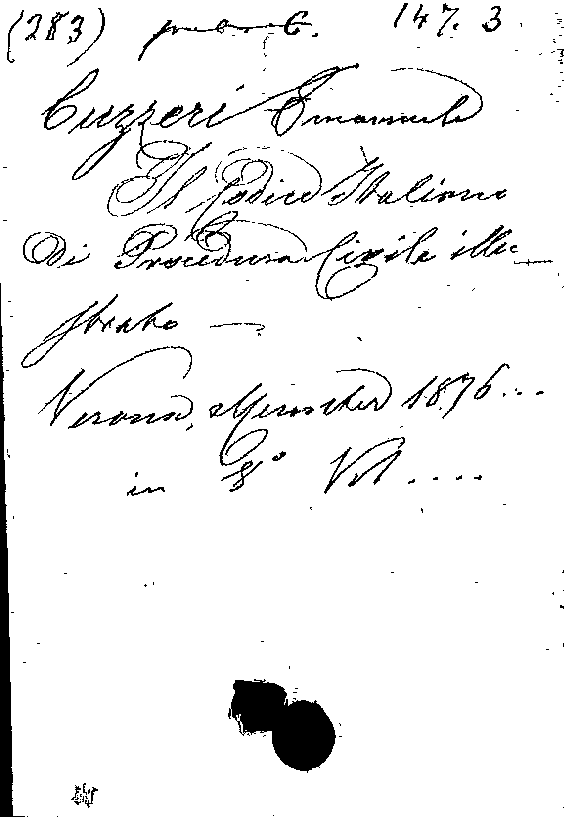 (283) 147. 3
Cuzzeri Emanuele
Il Codice Italiano
Di Procedura Civile illu-
strato —
Verona, Münster 1876...
in 8° Vol....